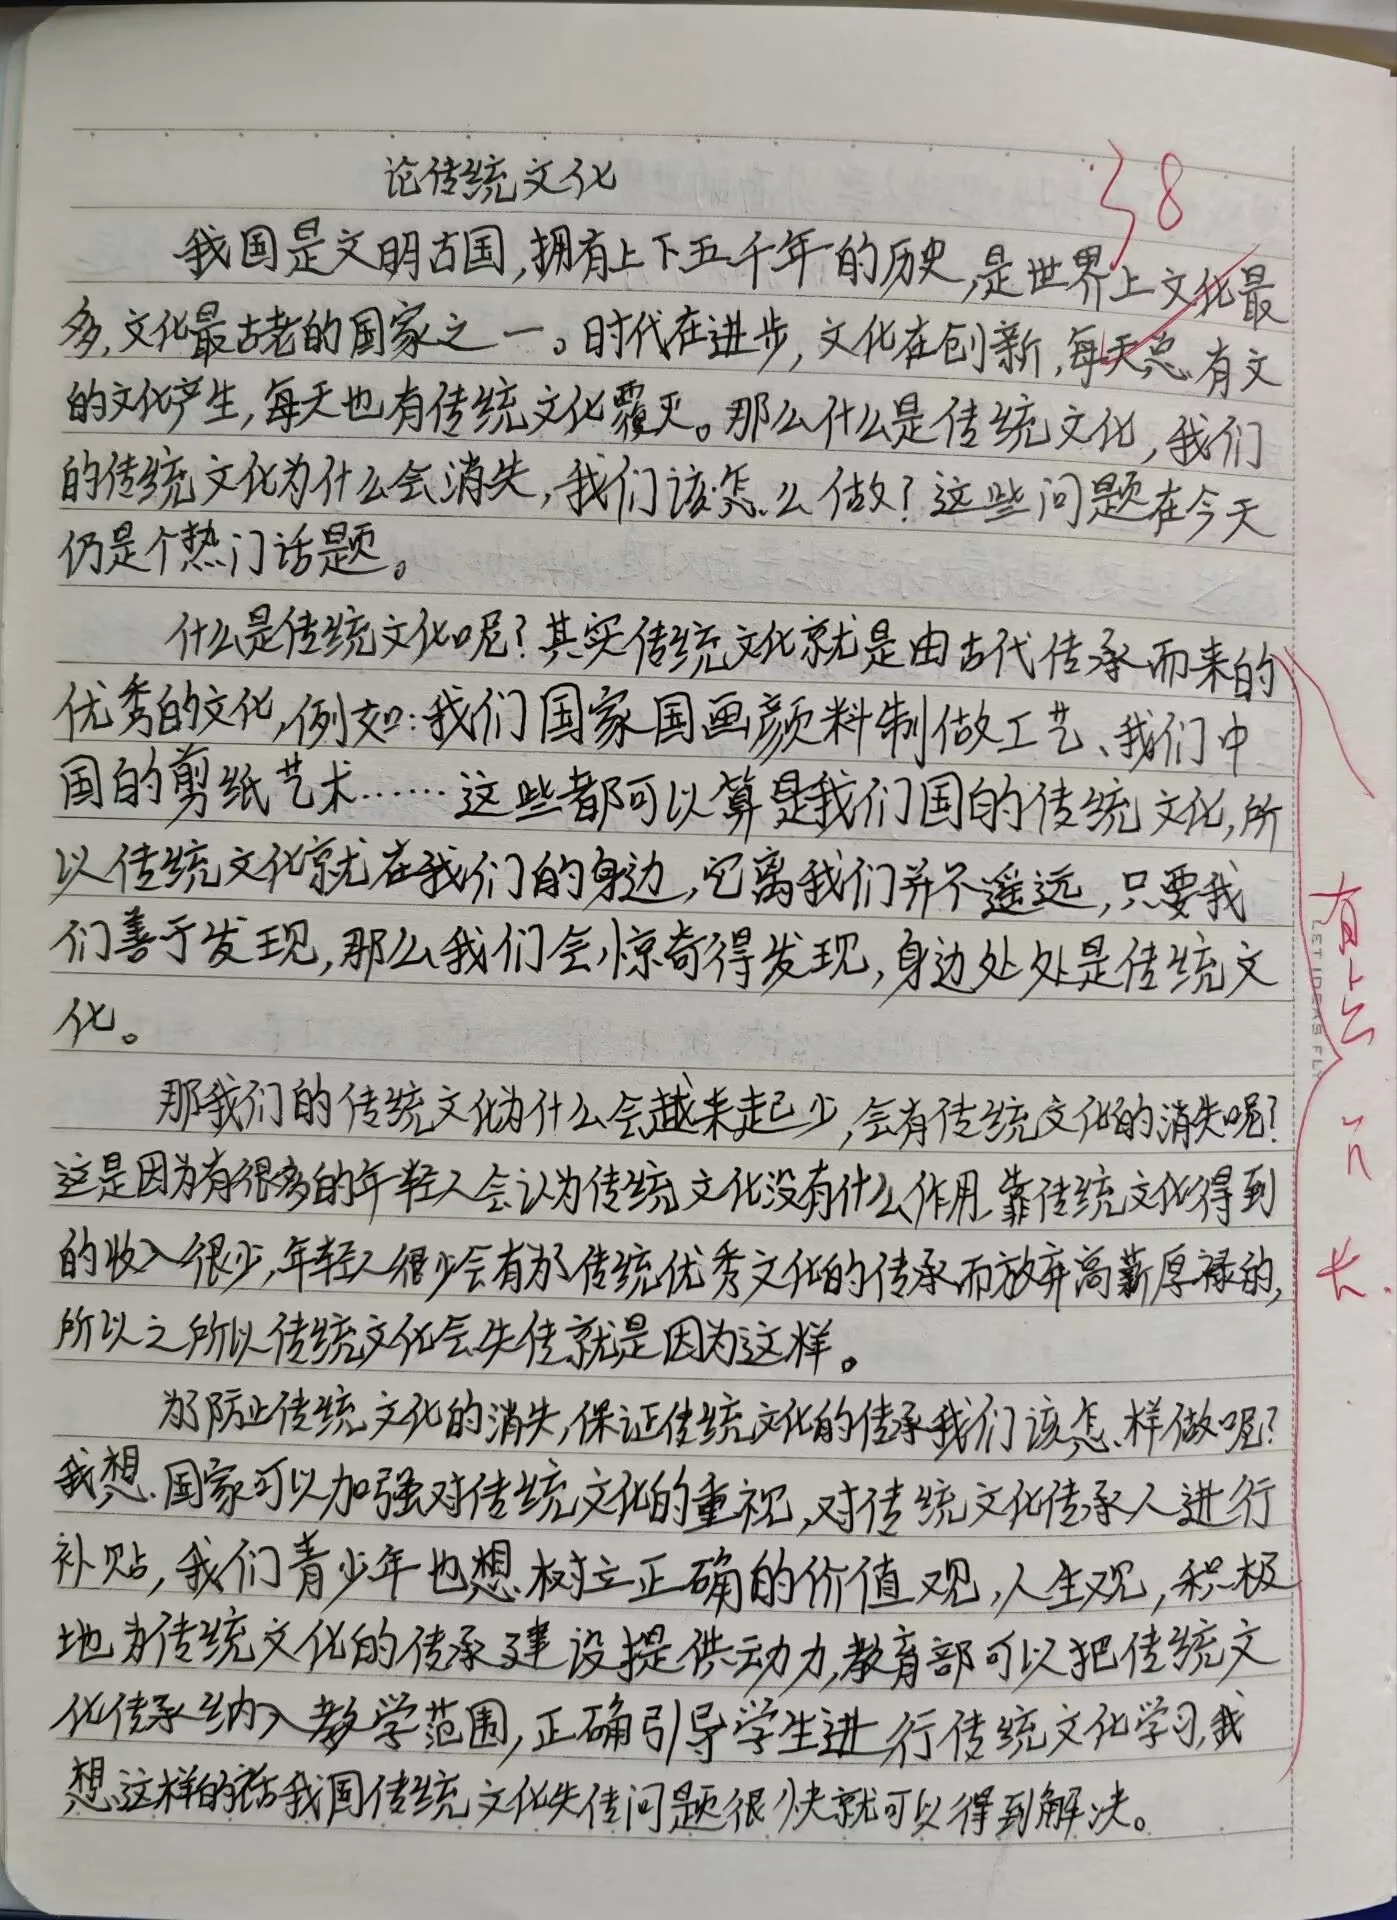 论传统文化
38
我国是文明古国,拥有上下五千年的历史,是世界上文化最
多,文化最古老的国家之一。时代在进步,文化在创新,每天总有文
的文化产生,每天也有传统文化覆灭。那么什么是传统文化,我们
的传统文化为什么会消失,我们该怎么做?这些问题在今天
仍是个热门话题。
什么是传统文化呢?其实传统文化就是由古代传承而来的
优秀的文化,例如:我们国家国画颜料制做工艺、我们中
国的剪纸艺术……这些都可以算是我们国的传统文化,所
以传统文化就在我们的身边,它离我们并不遥远,只要我
们善于发现,那么我们会惊奇得发现,身边处处是传统文
化。
那我们的传统文化为什么会越来起少,会有传统文化的消失呢?
这是因为有很多的年轻人会认为传统文化没有什么作用,靠传统文化得到
的收入很少,年轻人很少会有为了传统优秀文化的传承而放弃高薪厚禄的,
所以之所以传统文化会失传就是因为这样。
为了防止传统文化的消失,保证传统文化的传承我们该怎样做呢?
我想,国家可以加强对传统文化的重视,对传统文化传承人进行
补贴,我们青少年也想树立正确的价值观,人生观,积极
地为传统文化的传承建设提供动力,教育部可以把传统文
化传承纳入教学范围,正确引导学生进行传统文化学习,我
想这样的话我国传统文化失传问题很快就可以得到解决。
LET IDEAS FLY